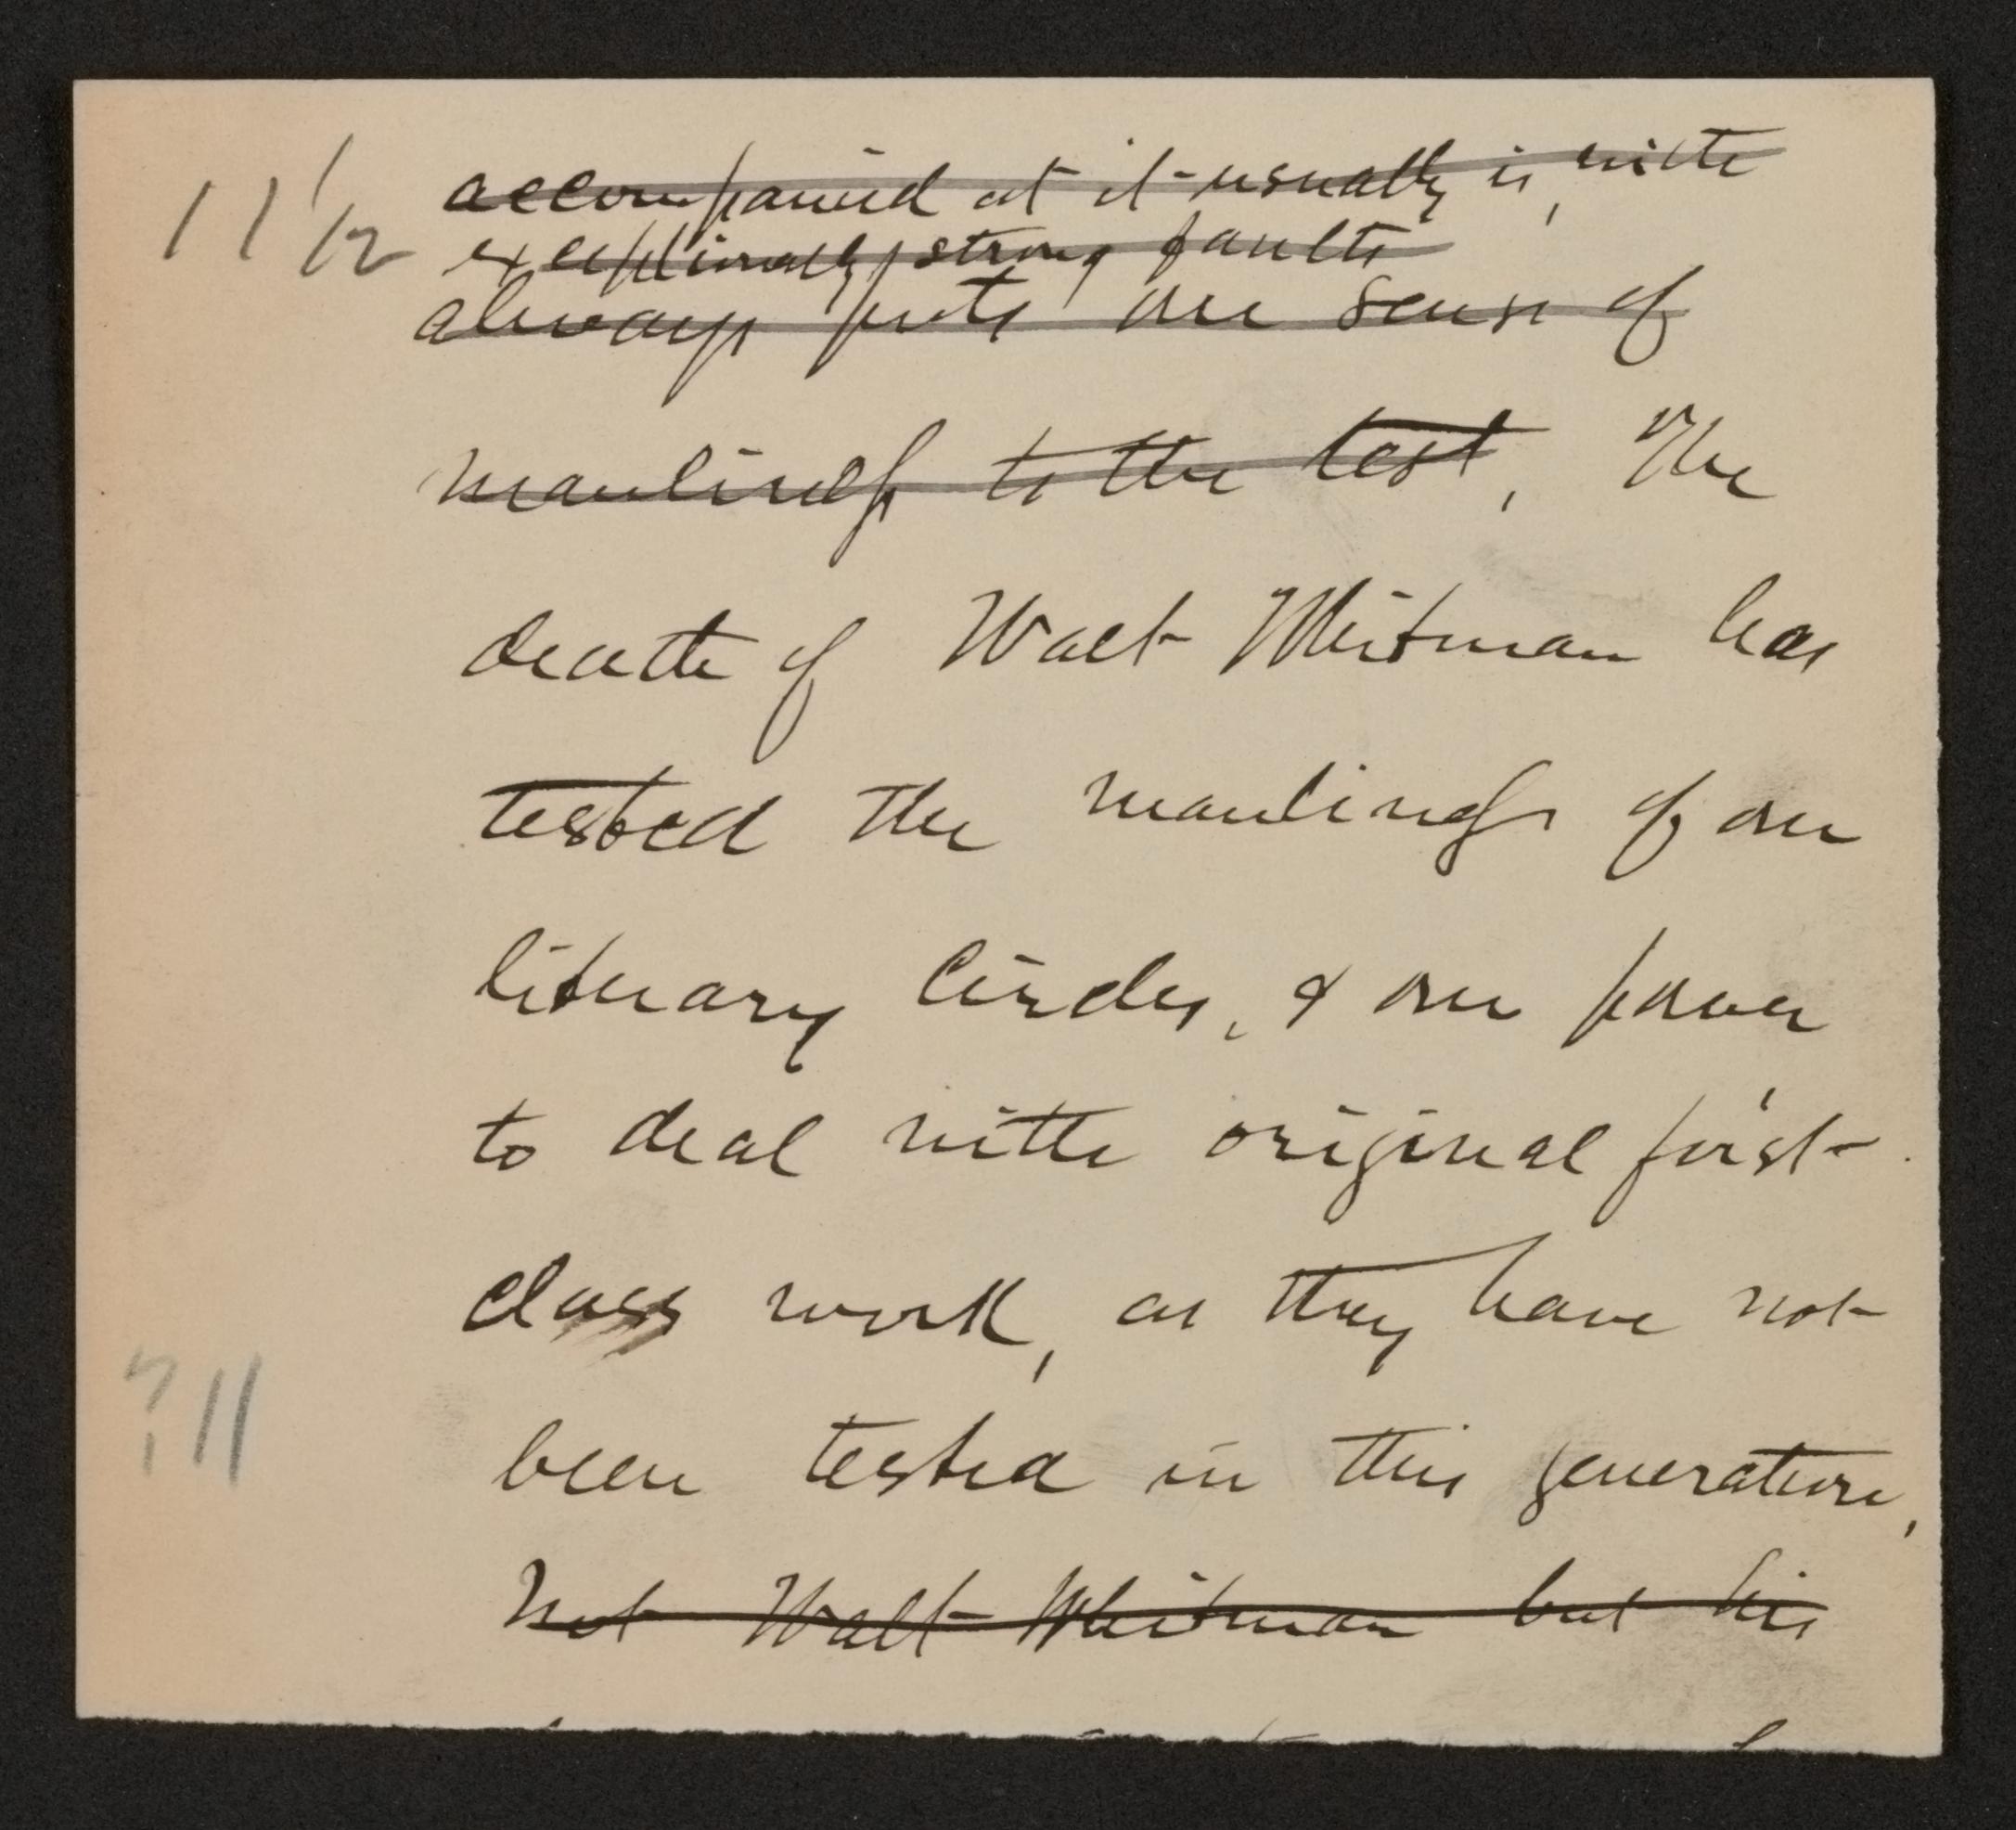 11 1/2
accompanied as it usually is, with
exceptionally strong faults
always puts our sense of
manliness to the test, The
death of Walt Whitman has
tested the manliness of our
literary circles, & our power
to deal with original first-
class work, as they have not
been tested in this generation,
? 11
Not Walt Whitman but his